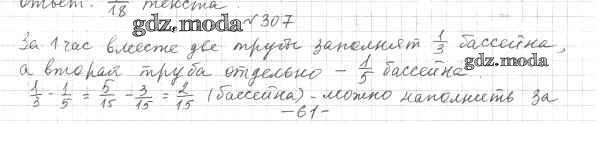 Ответ. 1/18 текста.
gdz.moda №307
За 1 час вместе две трубы заполнят 1/3 бассейна,
а вторая труба отдельно – 1/5 бассейна.
gdz.moda
1/3 - 1/5 = 5/15 - 3/15 = 2/15 (бассейна) - можно наполнить за
-61-